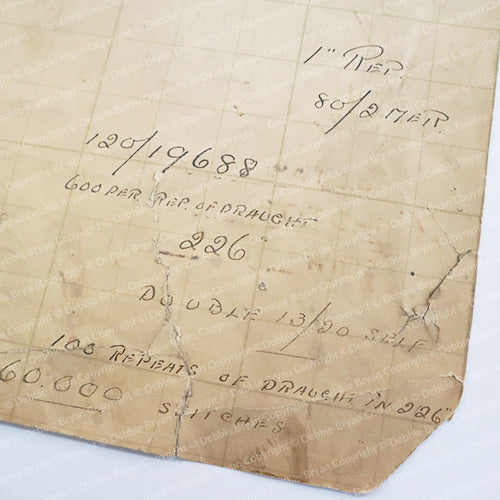 1" REP.
80/2 MER.
120/19688
600 PER REP. OF DRAUGHT
226
DOUBLE 13/20 SELF
100 REPEATS OF DRAUGHT IN 226"
60.000
Debbie Bryan Copyright ©